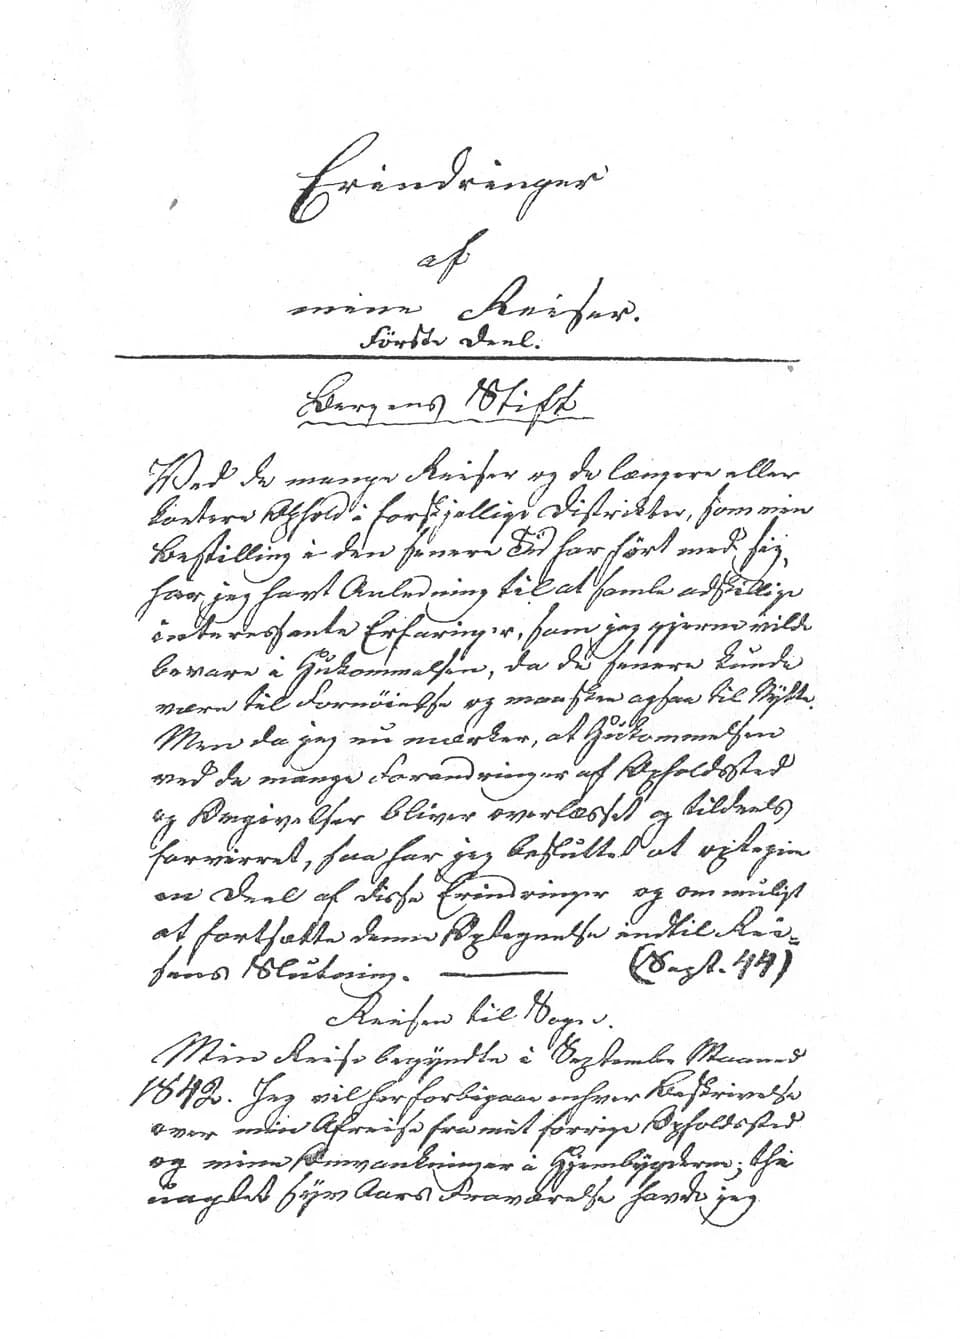 Erindringer
af
mine Reiser.
Første Deel.
Bergens Stift
Ved de mange Reiser og de længere eller
kortere Ophold i forskjellige Distrikter, som min
Bestilling i den senere Tid har ført med sig,
har jeg havt Anledning til at samle adskillige
interessante Erfaringer, som jeg gjerne vilde
bevare i Hukommelsen, da de senere kunde
være til Fornøielse og maaskee ogsaa til Nytte.
Men da jeg nu mærker, at Hukommelsen
ved de mange Forandringer af Opholdssted
og Omgivelser bliver overlæsset og tildeels
forvirret, saa har jeg besluttet at optegne
en Deel af disse Erindringer og om muligt
at fortsætte denne Optegnelse indtil Rei-
sens Slutning. (Sept. 44)
Reisen til Sogn.
Min Reise begyndte i September Maaned
1842. Jeg vil her forbigaae enhver Beskrivelse
over min Afreise fra mit forrige Opholdssted
og mine Omvankninger i Hjembygderne; thi
uagtet syv Aars Fraværelse havde jeg